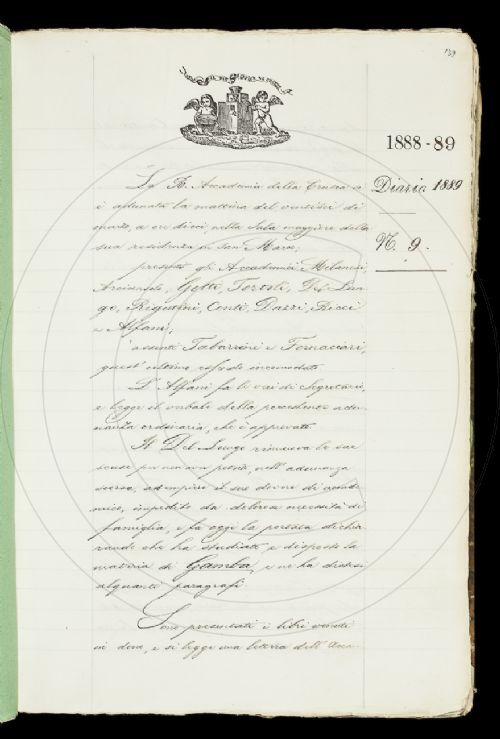 139
1888-89
Diario 1889
N. 9.
La R. Accademia della Crusca si
è adunata la mattina del ventisei di
marzo, a ore dieci, nella Sala maggiore della
sua residenza in San Marco;
presenti gli Accademici Milanesi,
Arciconsolo, Gotti, Tortoli, Del Lun-
go, Rigutini, Conti, Dazzi, Ricci
e Alfani;
assenti Tabarrini e Fornaciari,
quest' ultimo essendo incomodato.
L' Alfani fa le veci di Segretario,
e legge il verbale della precedente adu-
nanza ordinaria, che è approvato.
Il Del Lungo rinnova le sue
scuse per non aver potuto, nell' adunanza
scorsa, adempire il suo dovere di accade-
mico, impedito da dolorose necessità di
famiglia, e fa oggi la presenza dichia-
rando che ha studiato e disposto la
materia di Gamba, e ne ha distesi
alquanti paragrafi.
Sono presentati i libri venuti
in dono, e si legge una lettera dell' Acca-